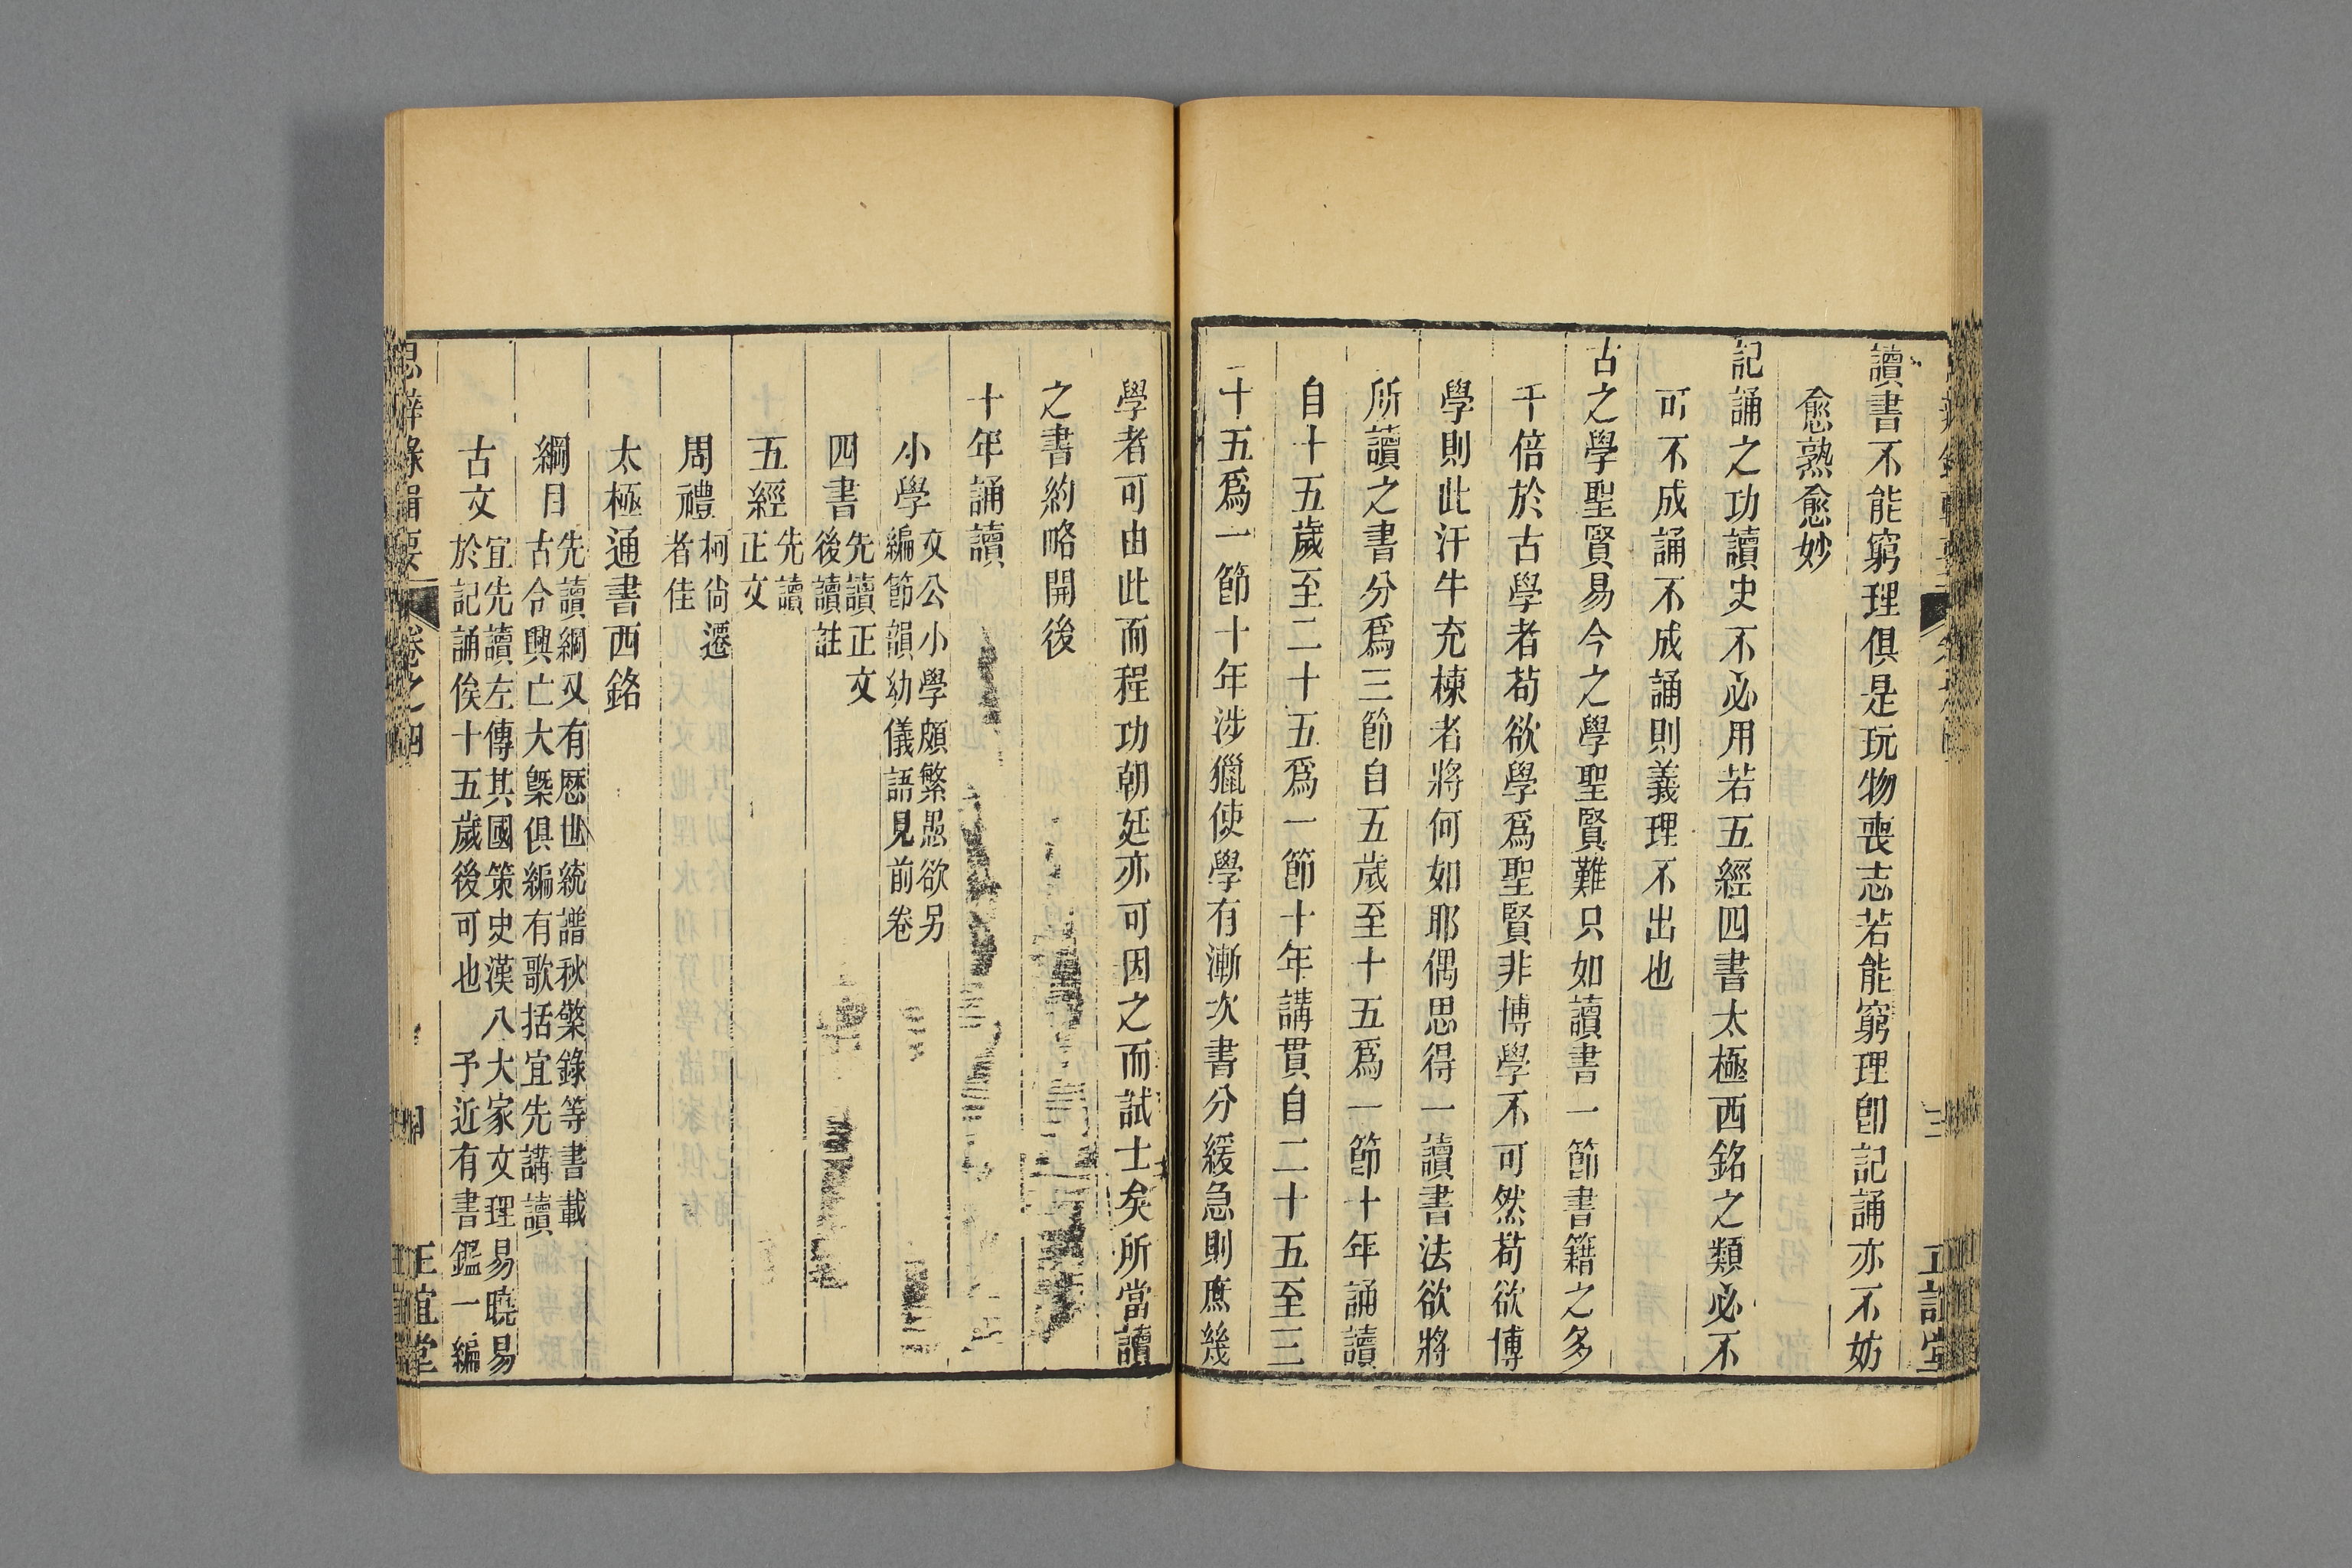 讀書不能窮理俱是玩物喪志若能窮理卽記誦亦不妨
愈熟愈妙
記誦之功讀史不必用若五經四書太極西銘之類必不
可不成誦不成誦則義理不出也
古之學聖賢易今之學聖賢難只如讀書一節書籍之多
千倍於古學者苟欲學爲聖賢非博學不可然苟欲博
學則此汗牛充棟者將何如耶偶思得一讀書法欲將
所讀之書分爲三節自五歲至十五爲一節十年誦讀
自十五歲至二十五爲一節十年講貫自二十五至三
十五爲一節十年涉獵使學有漸次書分緩急則庶幾
學者可由此而程功朝廷亦可因之而試士矣所當讀
之書約略開後
十年誦讀
小學
文公小學頗繁愚欲另
編節韻幼儀語見前卷
四書
先讀正文
後讀註
五經
先讀
正文
周禮
柯尙遷
者佳
太極通書西銘
綱目
先讀綱又有歷世統譜秋檠錄等書載
古今興亡大槩俱編有歌括宜先講讀
古文
宜先讀左傳其國策史漢八大家文理易曉易
於記誦俟十五歲後可也 予近有書鑑一編
思辨錄輯要
卷之四
四
正誼堂